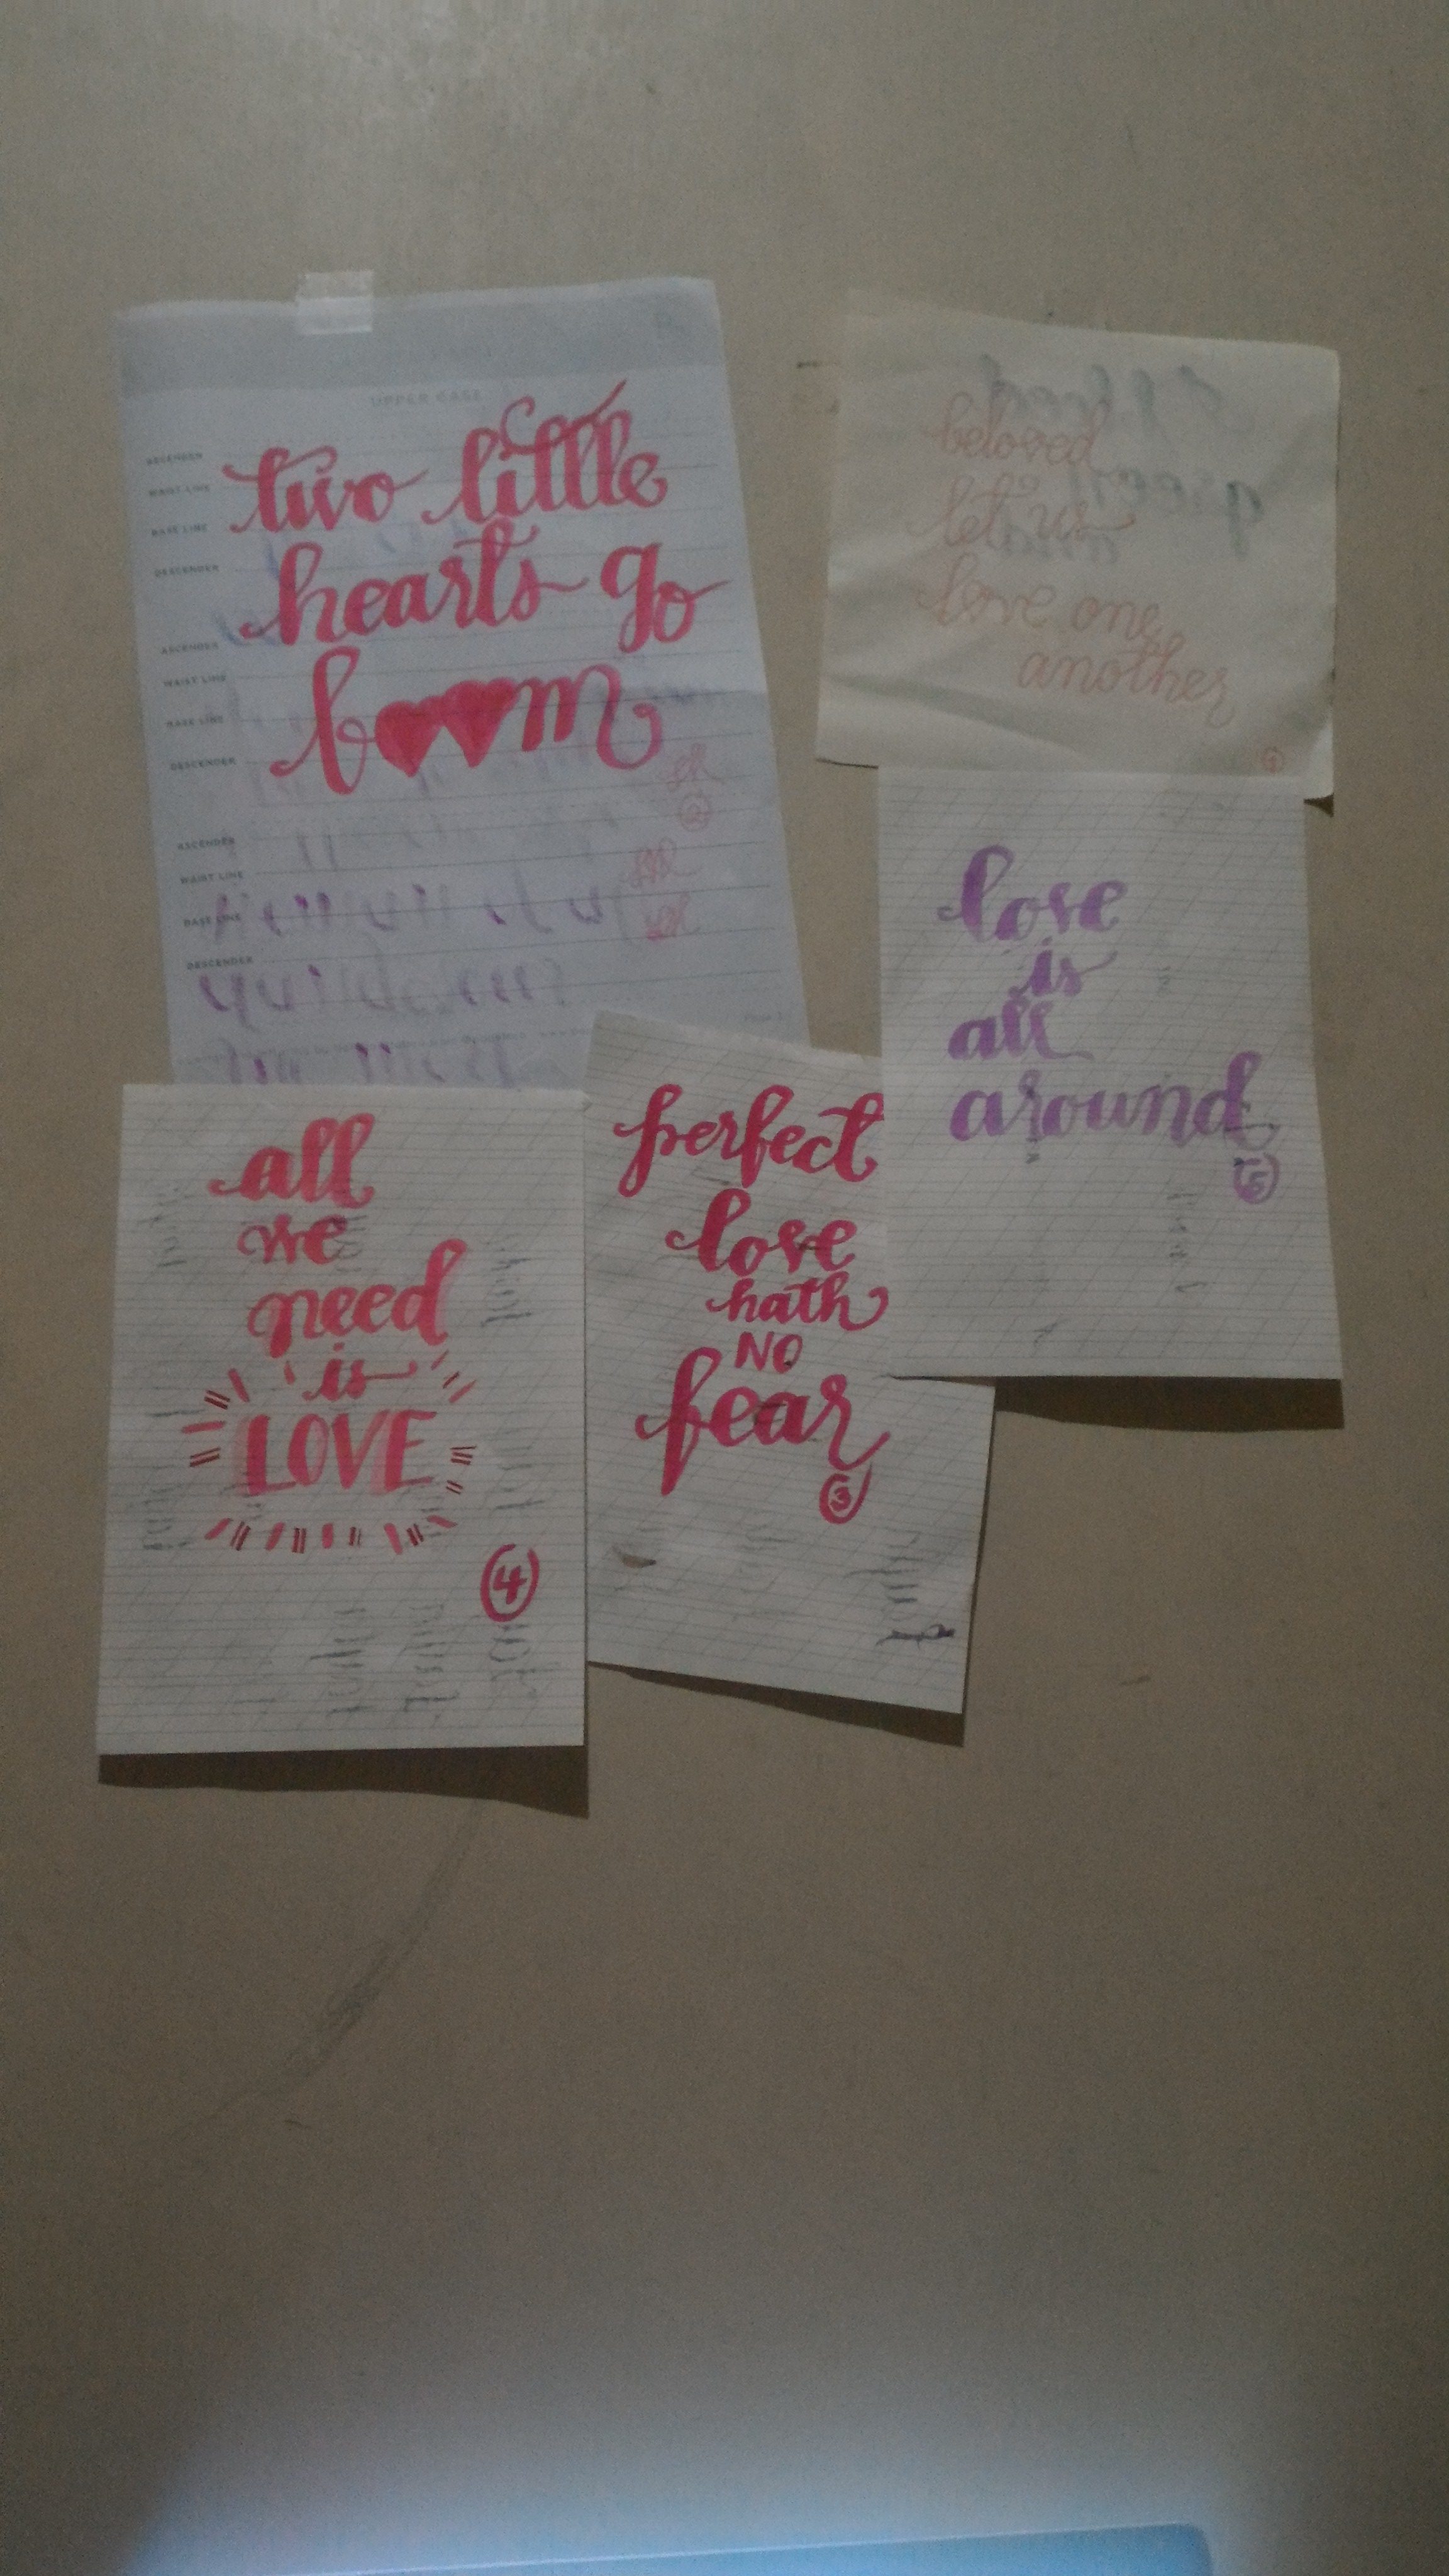 UPPER CASE
ASCENDER
WAIST LINE
BASE LINE
DESCENDER
two little
hearts go
boom
ASCENDER
WAIST LINE
BASE LINE
DESCENDER
2
ASCENDER
WAIST LINE
BASE LINE
DESCENDER
beloved
let us
love one
another
1
love
is
all
around
5
all
we
need
is
LOVE
4
perfect
love
hath
NO
fear
3